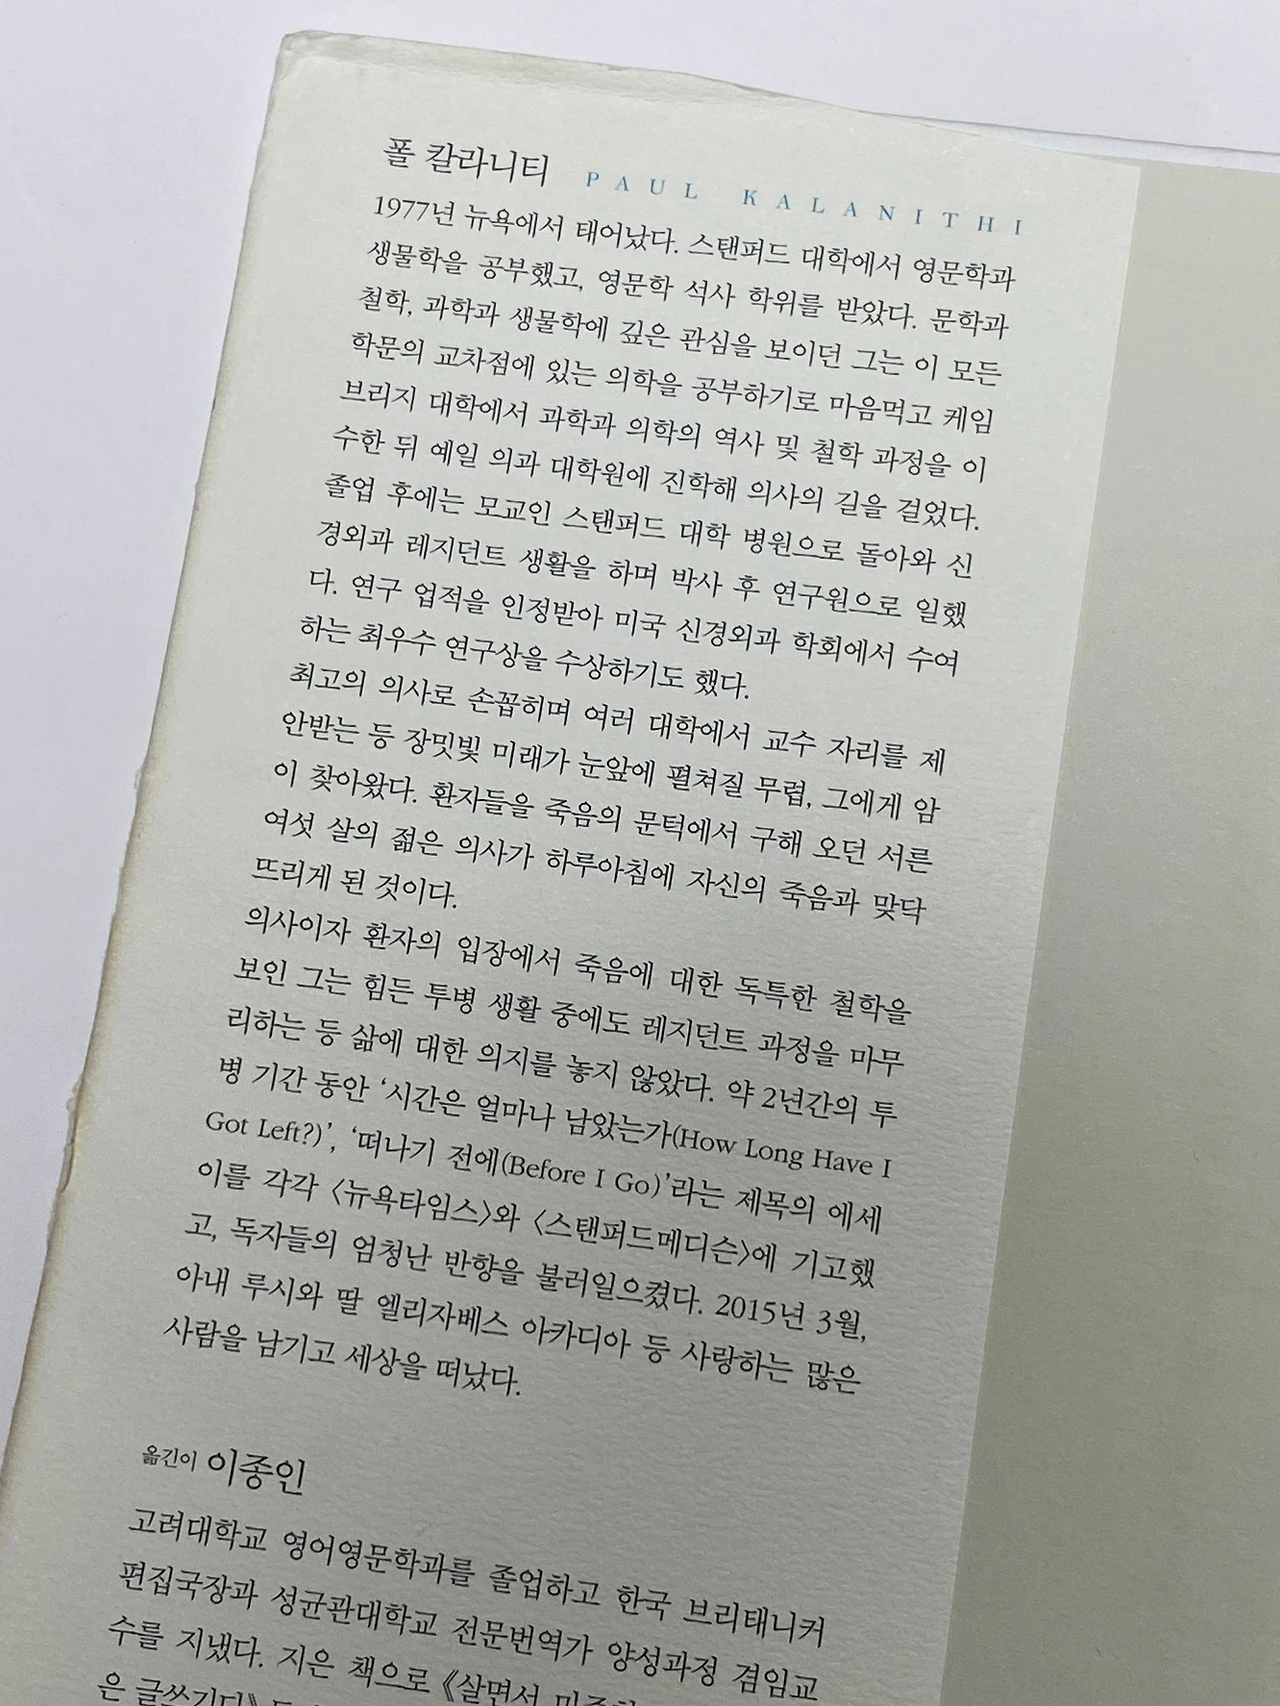 폴 칼라니티 PAUL KALANITHI
1977년 뉴욕에서 태어났다. 스탠퍼드 대학에서 영문학과
생물학을 공부했고, 영문학 석사 학위를 받았다. 문학과
철학, 과학과 생물학에 깊은 관심을 보이던 그는 이 모든
학문의 교차점에 있는 의학을 공부하기로 마음먹고 케임
브리지 대학에서 과학과 의학의 역사 및 철학 과정을 이
수한 뒤 예일 의과 대학원에 진학해 의사의 길을 걸었다.
졸업 후에는 모교인 스탠퍼드 대학 병원으로 돌아와 신
경외과 레지던트 생활을 하며 박사 후 연구원으로 일했
다. 연구 업적을 인정받아 미국 신경외과 학회에서 수여
하는 최우수 연구상을 수상하기도 했다.
최고의 의사로 손꼽히며 여러 대학에서 교수 자리를 제
안받는 등 장밋빛 미래가 눈앞에 펼쳐질 무렵, 그에게 암
이 찾아왔다. 환자들을 죽음의 문턱에서 구해 오던 서른
여섯 살의 젊은 의사가 하루아침에 자신의 죽음과 맞닥
뜨리게 된 것이다.
의사이자 환자의 입장에서 죽음에 대한 독특한 철학을
보인 그는 힘든 투병 생활 중에도 레지던트 과정을 마무
리하는 등 삶에 대한 의지를 놓지 않았다. 약 2년간의 투
병 기간 동안 ‘시간은 얼마나 남았는가(How Long Have I
Got Left?)’, ‘떠나기 전에(Before I Go)’라는 제목의 에세
이를 각각 〈뉴욕타임스〉와 〈스탠퍼드메디슨〉에 기고했
고, 독자들의 엄청난 반향을 불러일으켰다. 2015년 3월,
아내 루시와 딸 엘리자베스 아카디아 등 사랑하는 많은
사람을 남기고 세상을 떠났다.
옮긴이 이종인
고려대학교 영어영문학과를 졸업하고 한국 브리태니커
편집국장과 성균관대학교 전문번역가 양성과정 겸임교
수를 지냈다. 지은 책으로 《살면서
은 글쓰기다》